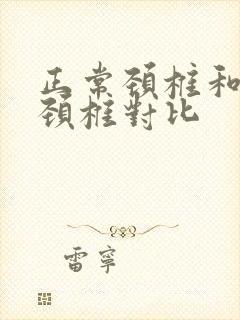 正常頚椎和
頚椎對比
雷寧